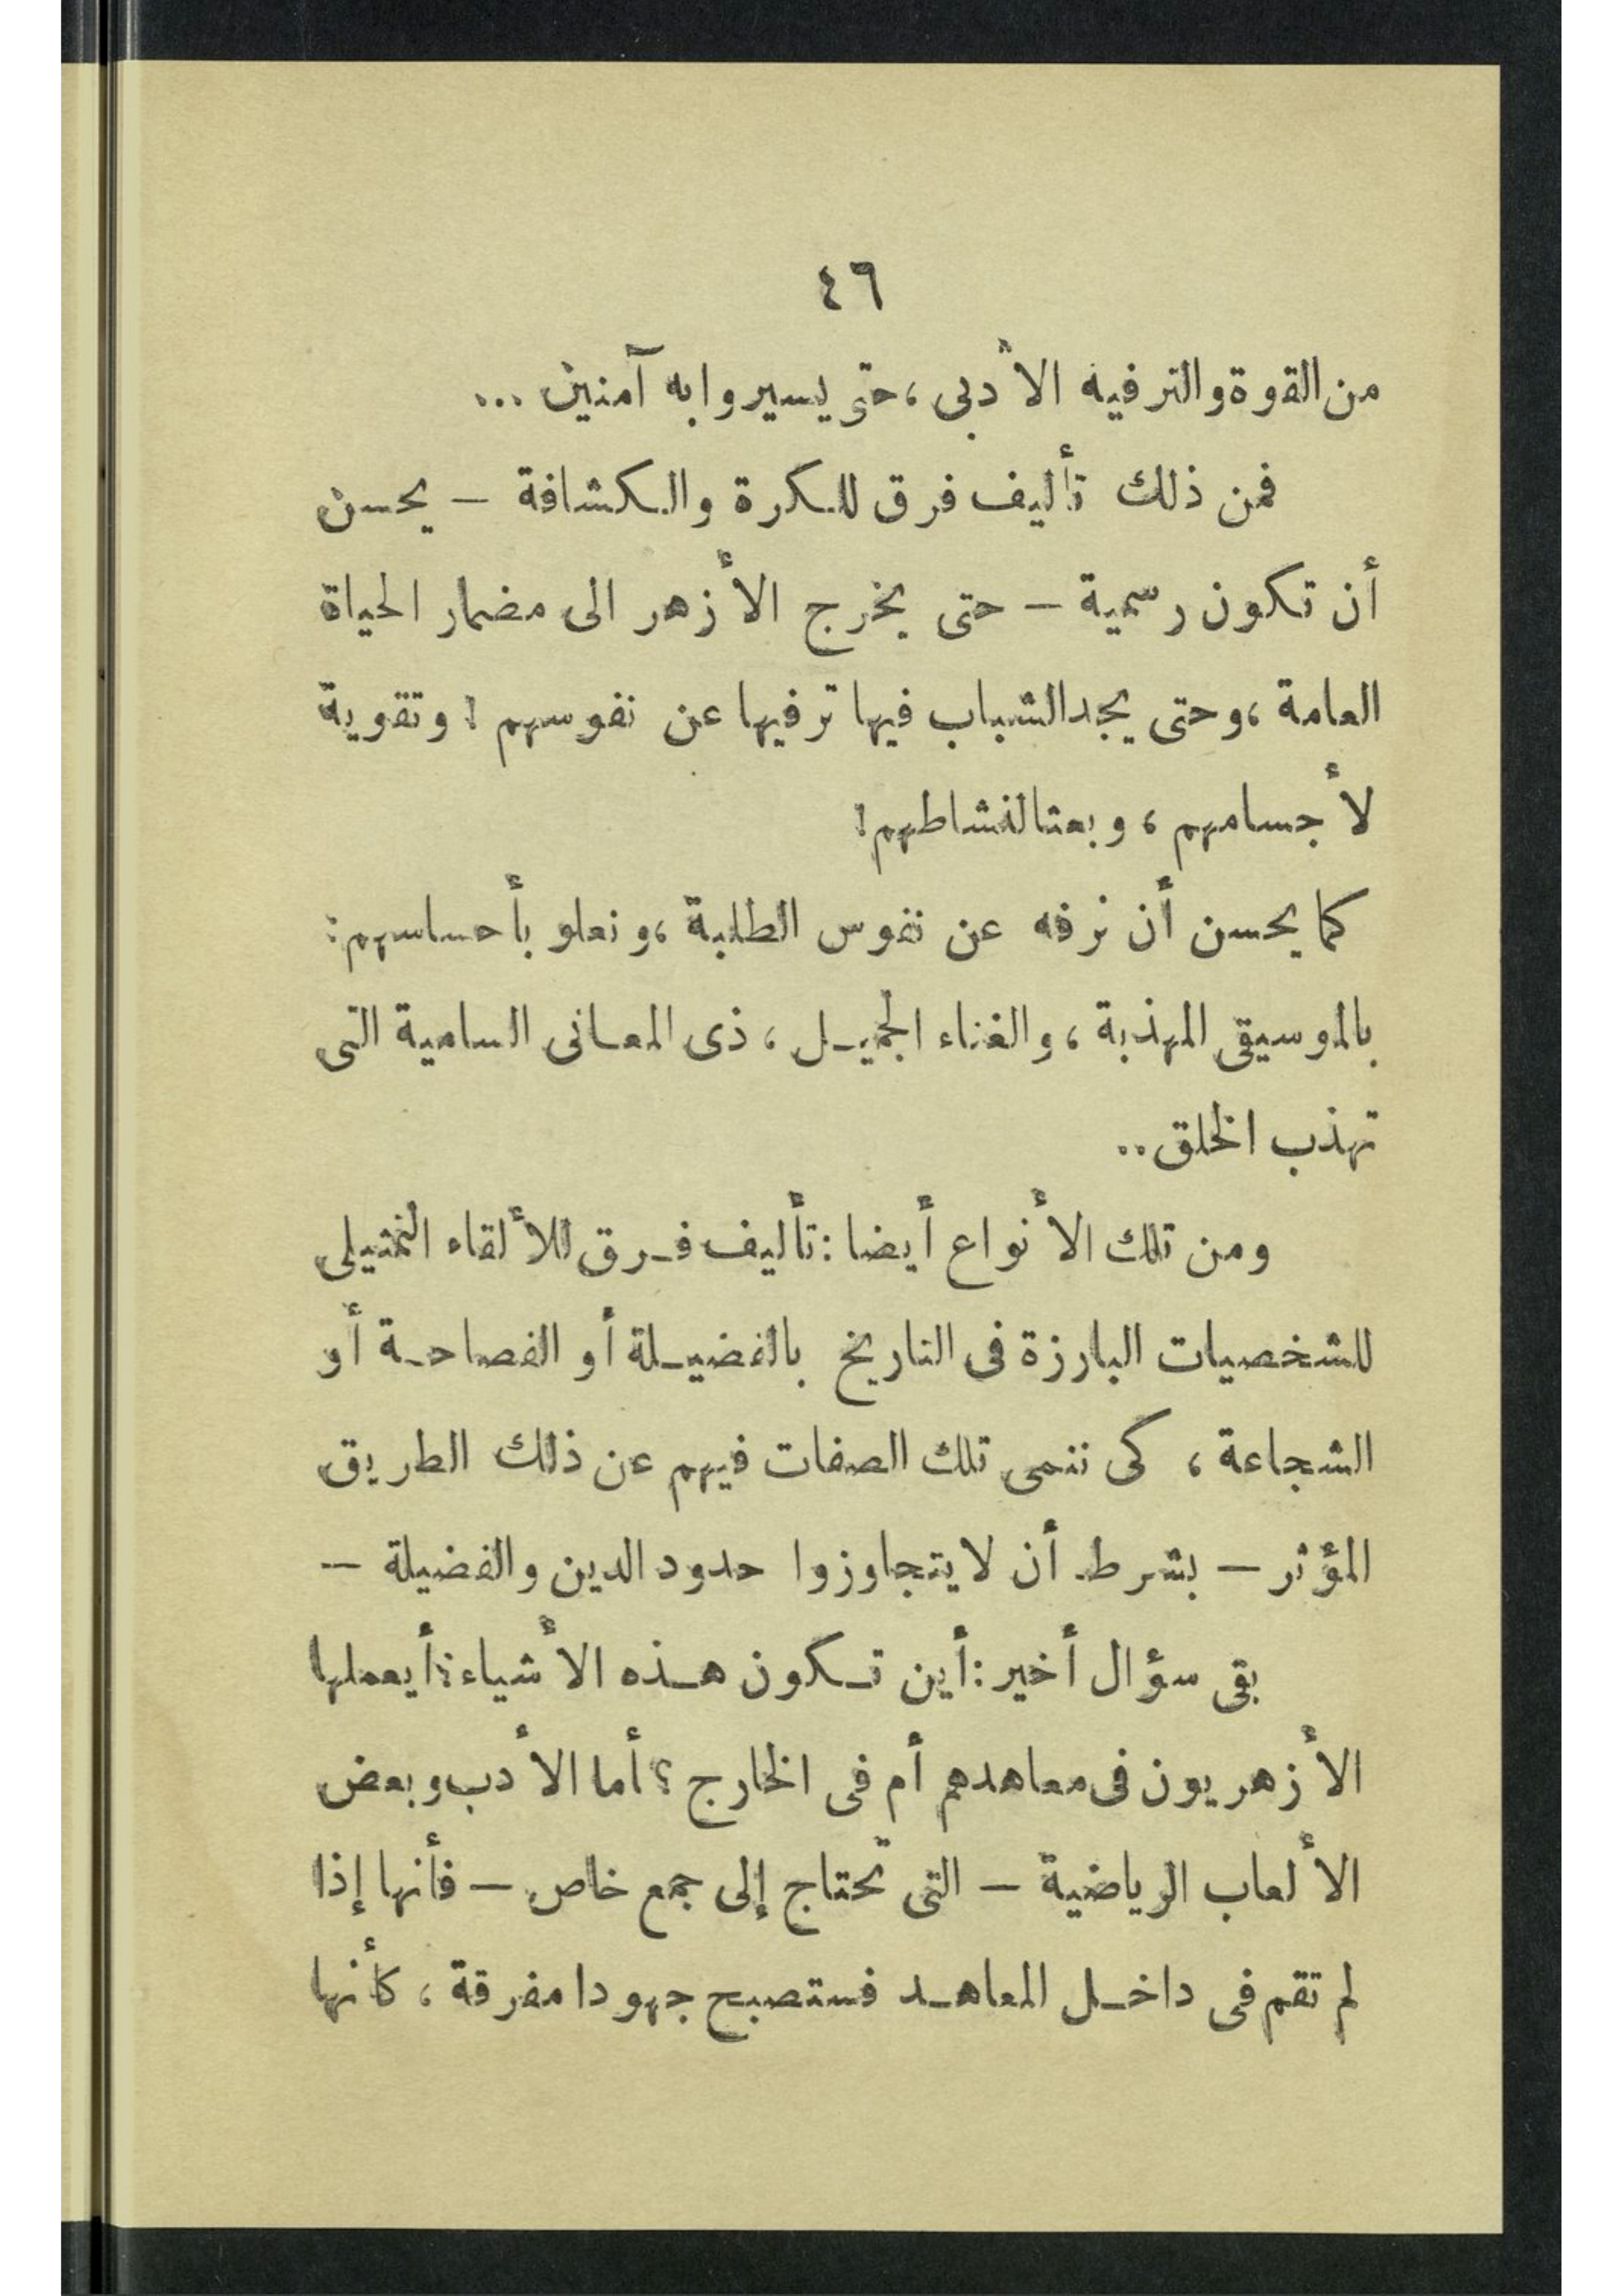 ٤٦
من القوة والترفيه الأدبى ، حتى يسيروا به آمنين ...
فمن ذلك تأليف فرق للكرة والكشافة — يحسن
أن تكون رسمية — حتى يخرج الأزهر الى مضمار الحياة
العامة ، وحتى يجد الشباب فيها ترفيها عن نفوسهم ! وتقوية
لأجسامهم ، وبعثا لنشاطهم !
كما يحسن أن نرفه عن نفوس الطلبة ، ونعلو بأحساسهم :
بالموسيقى المهذبة ، والغناء الجميل ، ذى المعانى السامية التى
تهذب الخلق ..
ومن تلك الأنواع أيضا : تأليف فرق للألقاء التمثيلى
للشخصيات البارزة فى التاريخ بالفضيلة أو الفصاحة أو
الشجاعة ، كى ننمى تلك الصفات فيهم عن ذلك الطريق
المؤثر — بشرط أن لا يتجاوزوا حدود الدين والفضيلة —
بقى سؤال أخير : أين تكون هذه الأشياء : أيعملها
الأزهريون فى معاهدهم أم فى الخارج ؟ أما الأدب وبعض
الألعاب الرياضية — التى تحتاج إلى جمع خاص — فأنها إذا
لم تقم فى داخل المعاهد فستصبح جهودا مفرقة ، كأنها